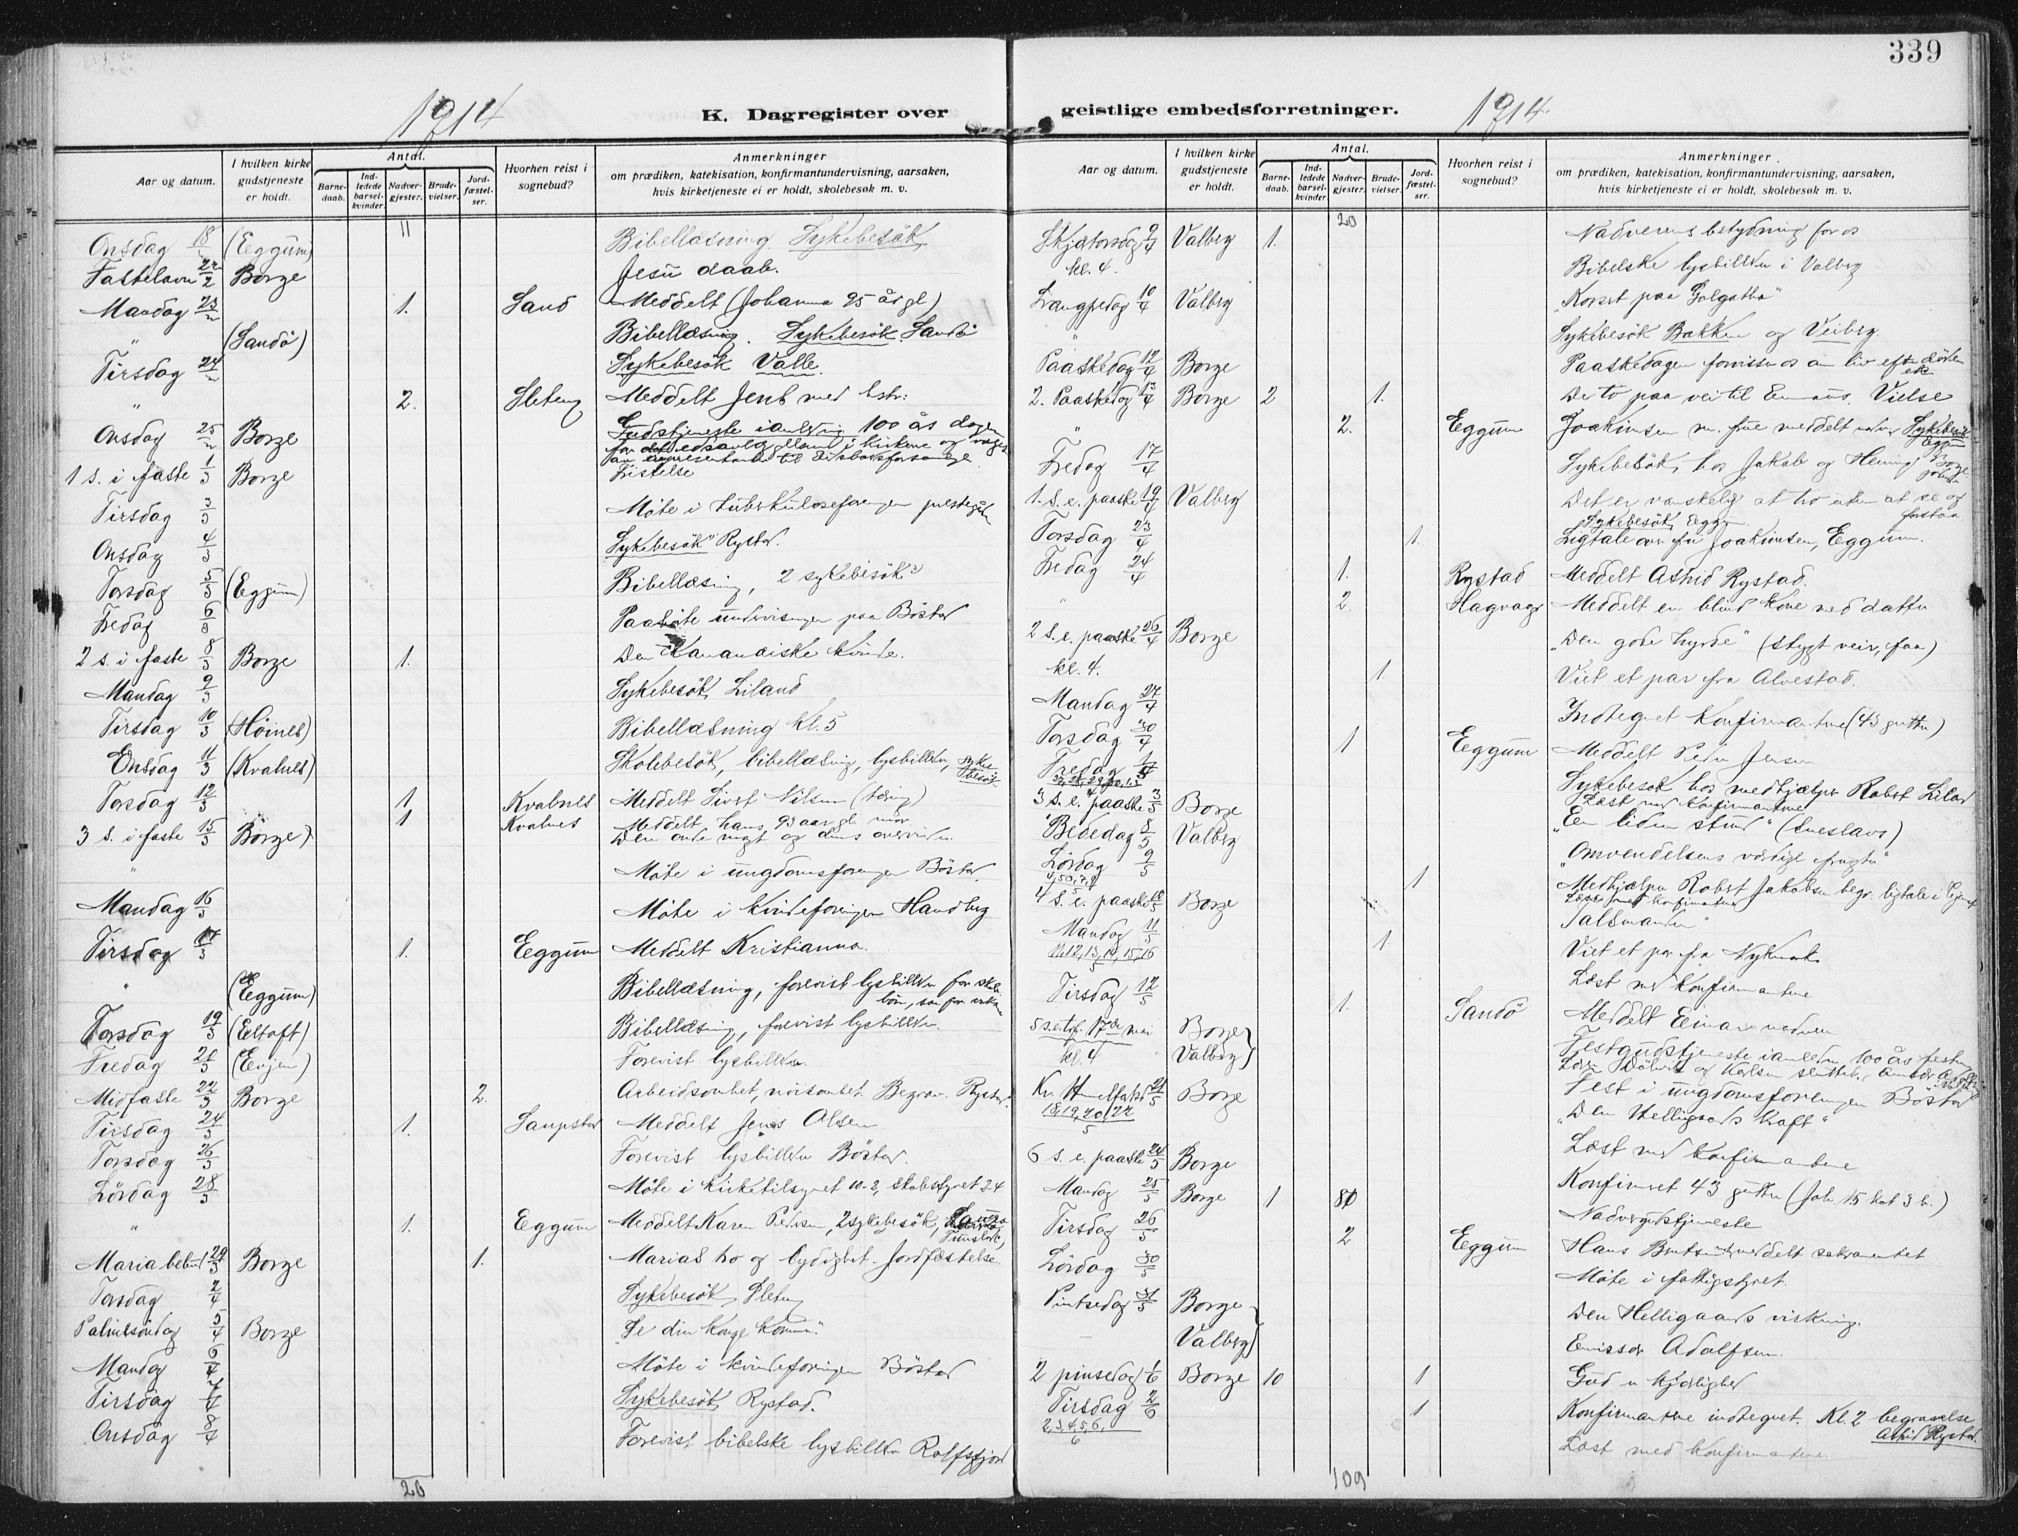 339
1914
K. Dagregister over
Antal.
Aar og datum.
I hvilken kirke gudstjeneste er holdt.
Barne-daab.
Ind-ledede barsel-kvinder.
Nadver-gjester.
Brude-vielser.
Jord-fæstel-ser.
Hvorhen reist i sognebud?
Anmerkninger
om prædiken, katekisation, konfirmantundervisning, aarsaken,
hvis kirketjeneste ei er holdt, skolebesøk m. v.
11
Onsdag 18 (Eggum) Bibellæsning Sykebesök
Fastelavn 22/2 Borge Jesu daab.
Mandag 23 1. Sand Meddelt (Johanna 95 år gl)
" (Sandö) Bibellæsning. Sykebesök Sandö
Tirsdag 24 Sykebesök Valle.
" 2. Sletteng Meddelt Jens med hstr:
Onsdag 25 Borge Gudstjeneste i anledning 100 års dagen
for edsavlæggelsen i kirkene og valget
av representanter til Eidsvoldsforsamlinge
1 s. i faste 1/3 Borge Fristelse
Tirsdag 3/3 Möte i tuberkuloseforeningen prestegården
Onsdag 4/3 Sykebesök Rystad.
Torsdag 5/3 (Eggum) Bibellæsning, 2 sykebesök
Fredag 6/3 undervisningen paa Böstad
2 s. i faste 8/3 Borge 1. Den Kananæiske kvinde.
Mandag 9/3 Sykebesök Liland
Tirsdag 10/3 (Höines) Bibellæsning kl. 5
Onsdag 11/3 (Kvalnes) Skolebesök, bibellæsning, lysbilleder, sykebesök.
Torsdag 12/3 1 Kvalnes Meddelt Sivert Nilsen (tæring)
1 Kvalnes Meddelt hans 93 aar gl. mor
3 s. i faste 15/3 Borge) Den onde magt og dens overvinden
" Möte i ungdomsforeningen Böstad.
Mandag 16/3 Möte i kvindeforeningen Handberg
Tirsdag 17/3 1. Eggum Meddelt Kristianna.
" (Eggum) Bibellæsning, forevist lysbilleder for skole
börn, som for voksne
Torsdag 19/3 (Eltoft) Bibellæsning, forevist lysbilleder.
Fredag 20/3 (Enjen) Forevist lysbilleder.
Midfaste 22/3 Borge 2. Arbeidsomhet, noisomhet. Begrav. Rystad.
Tirsdag 24/3 1. Saupstad Meddelt Jens Olsen
Torsdag 26/3 Forevist lysbilleder Böstad.
Lördag 28/3 Möte i kirketilsynet 10-2, skolestyret 2-4
" 1. Eggum Meddelt Karen Pedersen, 2 sykebesök,
Maria bebud 29/3 Borge 1. Marias tro og lydighet. Jordfæstelse
Torsdag 2/4 Sykebesök Sleteng
Palmesöndag 5/4 Borge "Se din konge kommer."
Mandag 6/4 Möte i kvindeforeningen Böstad
Tirsdag 7/4 Sykebesök Rystad.
Onsdag 8/4 Forevist bibelske lysbilleder Rolfsfjord
20
geistlige embedsforretninger.
1914
Antal.
Aar og datum.
I hvilken kirke gudstjeneste er holdt.
Barne-daab.
Ind-ledede barsel-kvinder
Nadver-gjester.
Brude-vielser
Jord-fæstel-ser.
Hvorhen reist i sognebud?
Anmerkninger.
om prædiken, katekisation, konfirmantundervisning, aarsaken,
hvis kirketjeneste ei er holdt, skolebesøk m. v.
20
Skjærtorsdag 9/4 Valberg 1. Nadverens betydning for os
kl. 4. Bibelske lysbilleder i Valberg
Langfredag 10/4 Valberg "Korset paa Golgatha"
" Sykebesök Bakken og Veiberg.
Paaskedag 12/4 Borge Paaskedagen forvisser os om liv efter döden
2. Paaskedag 13/4 Borge 2 1. De to paa vei til Emaus. Vielse
" 2. Eggum Joakimsen m. frue meddelt nadver Sykebesök Eggum
Fredag 17/4 Sykebesök hos Jakob og Henning
1. s. e. paaske 19/4 Valberg Det er vanskelig at tro uten at se og
forstaa.
Sykebesök Eggum
Torsdag 23/4 1. Ligtale over fru Joakimsen, Eggum.
Fredag 24/4 1. Rystad Meddelt Astrid Rystad.
" 2. Hagvaag Meddelt en blind kone med datter
2 s. e. paaske 26/4 Borge "Den gode hyrde" (stygt veir, faa)
kl. 4. 1 Viet et par fra Alvestad.
Mandag 27/4 Indtegnet konfirmantene (43 gutter)
Torsdag 30/4 1 Eggum Meddelt Peder Jensen
Fredag Sykebesök hos medhjælper Robert Liland
Læst med konfirmantene
3 s. e. paaske 3/5 Borge "En liden stund" (Gustavs)
Bededag 8/5 Valberg "Omvendelsens værdige frugter"
Lördag 9/5 1 Medhjælper Robert Jakobsen begr. ligtale
Læst med konfirmantene
4 s. e. paaske 10/5 Borge Talsmanden"
Mandag 11/5 1. Viet et par fra Nykmark
11, 12, 13, 14, 15, 16/5 Læst med konfirmantene
Tirsdag 12/5 1. Sandö Meddelt Einar nadver
17de mai Borge) Festgudstjeneste i anledn. 100 års festen
kl. 4 Valberg)
Fest i ungdomsforeningen Böstad
Kr. Himmelfartsd 21/5 Borge "Den Helligaands kraft"
18, 19, 20, 22/5 Læst med konfirmantene
6 s. e. paaske 24/5 Borge Konfirmeret 43 gutter (Joh. 15 kat 3 b.)
Mandag 25/5 Borge 1 80 Nadvergudstjeneste
Tirsdag 26/5 2 Eggum Hans Berntsen meddelt sakramentet
Lördag 30/5 Möte i fattigstyret.
Pintsedag 31/5 Borge Den Helligaands virkning.
Valberg) Emissær Adolfsen.
2 pinsedag 1/6 Borge 10 1 Gud er kjærlighed
Tirsdag 2/6 1 Konfirmantene indtegnet. Kl. 2 begravelse
Astrid Rystad.
2, 3, 4, 5, 6,/6 Læst med konfirmantene.
109